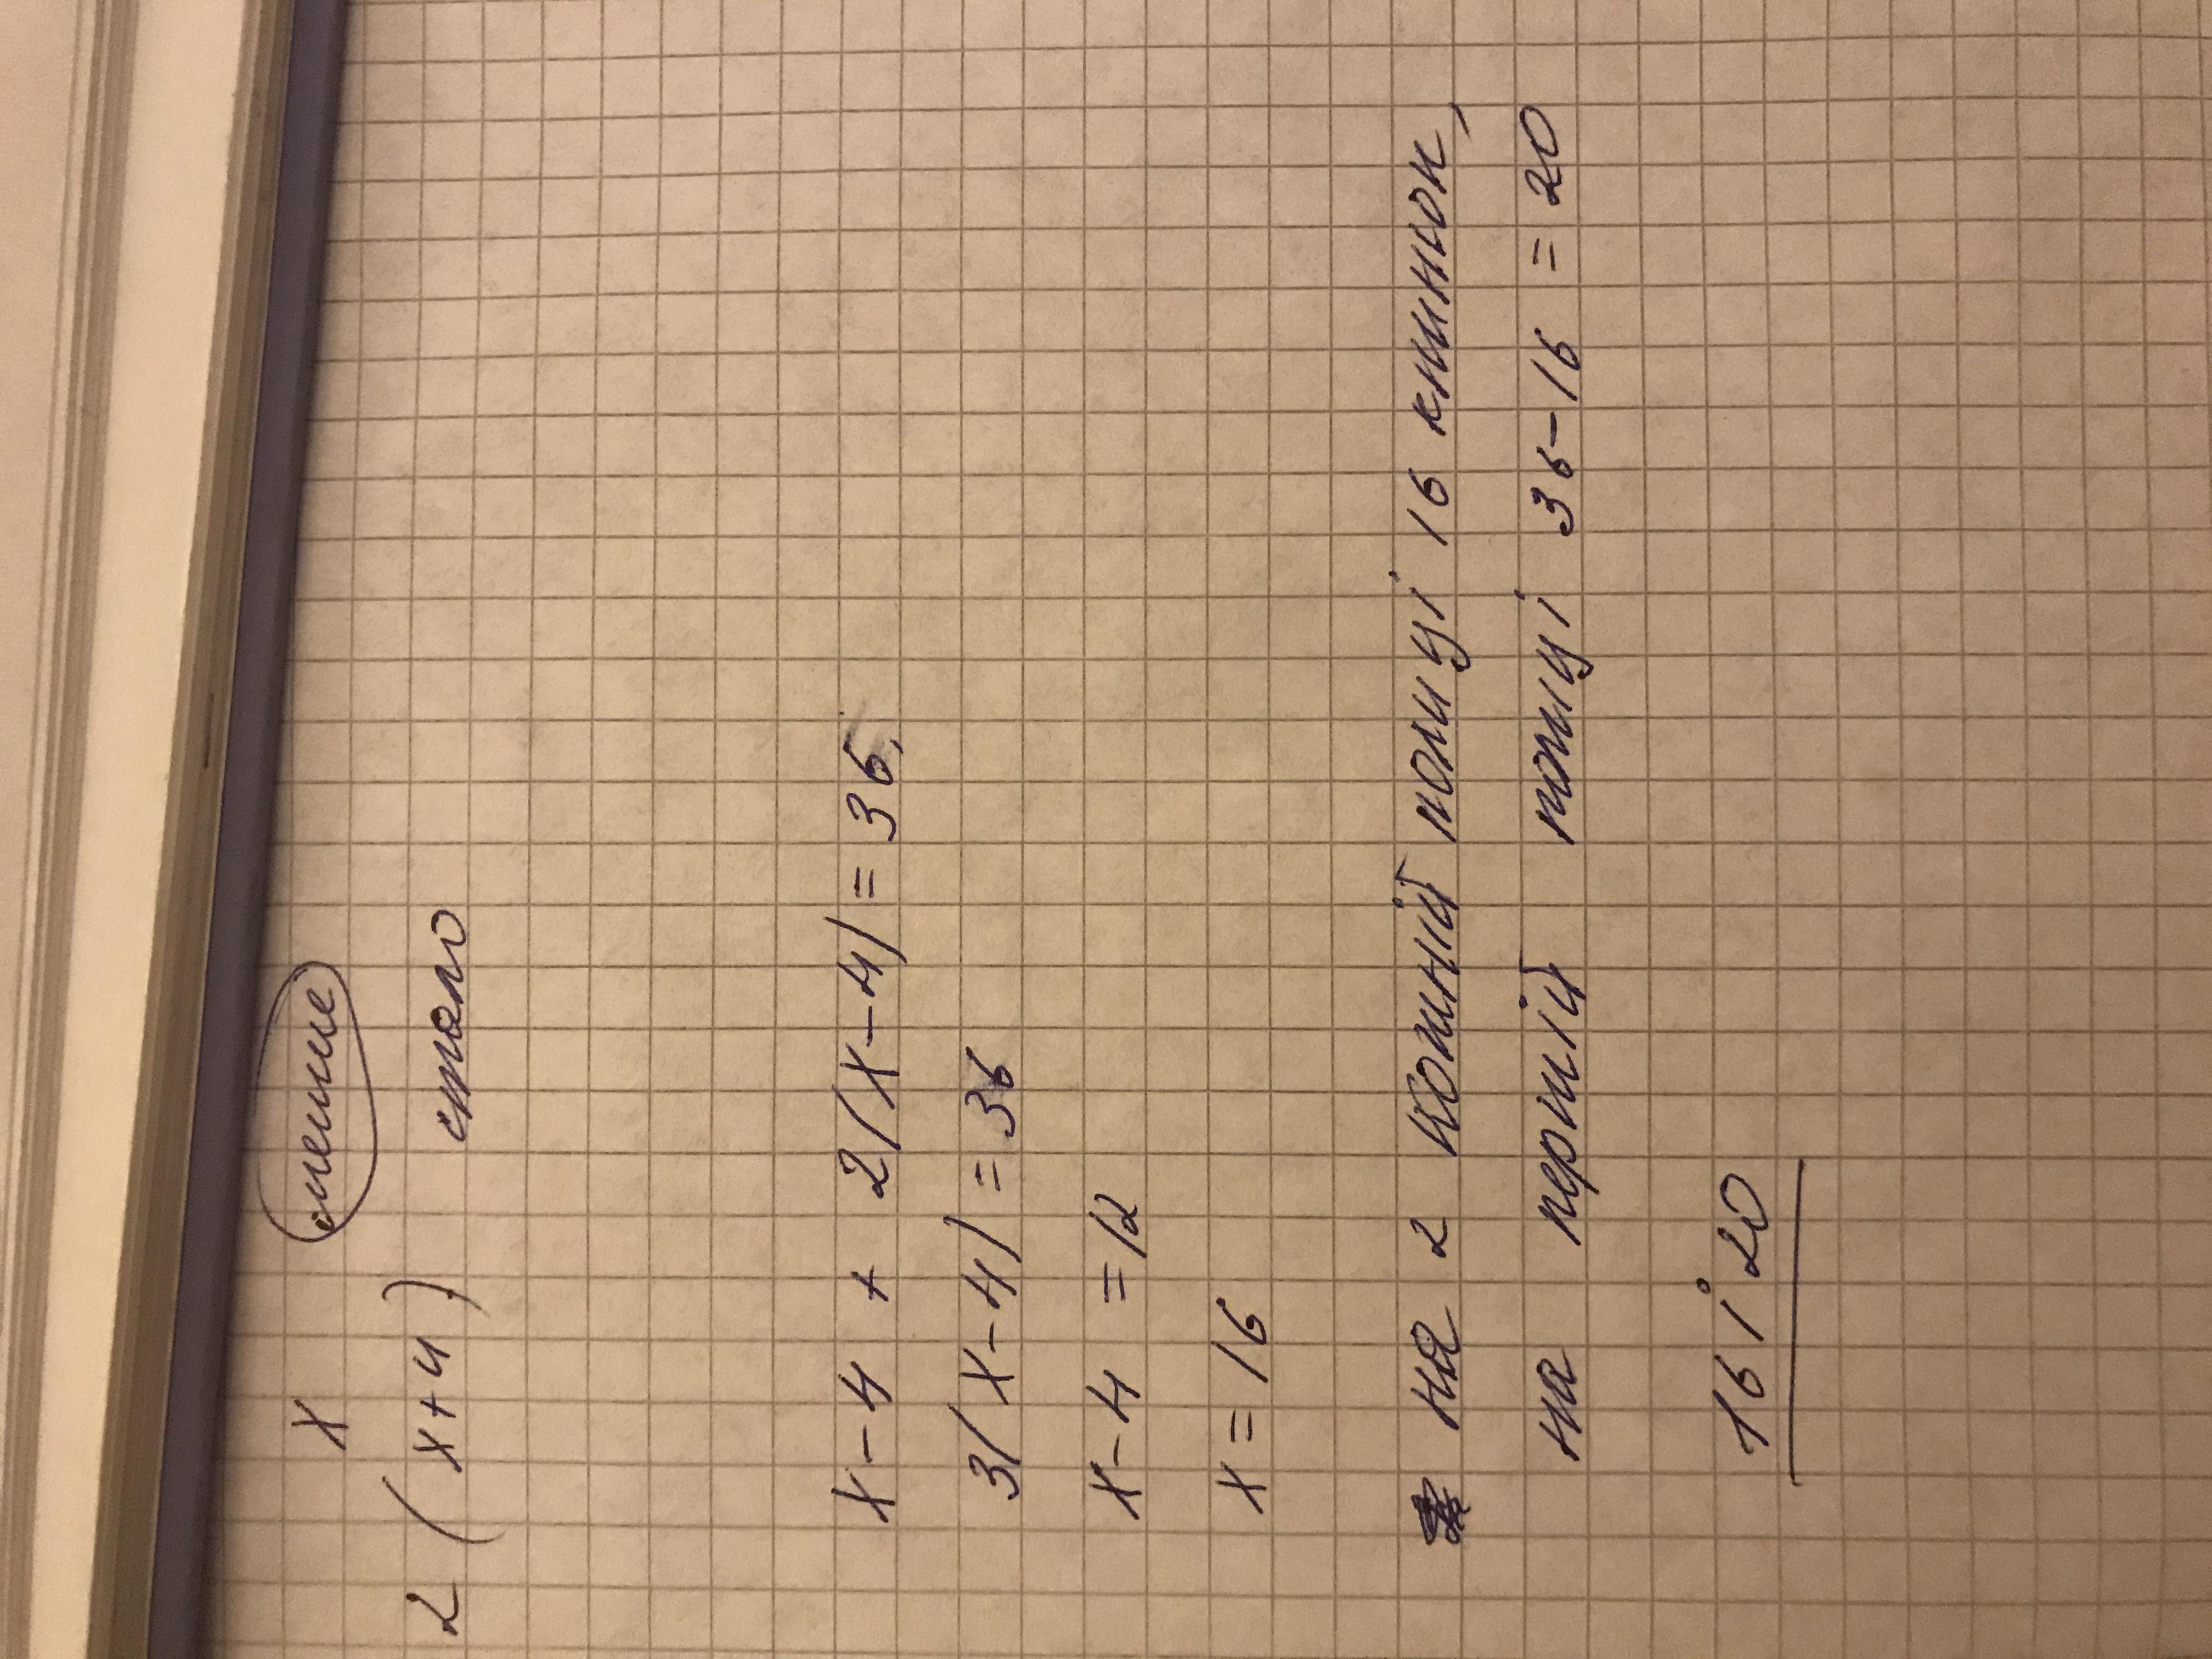 x менше
2 (x+4) стало
x-4 + 2(x-4) = 36,
3(x-4) = 36
x-4 = 12
x = 16
на 2 книжній полиці 16 книжок,
на першій полиці 36-16 = 20
16 і 20